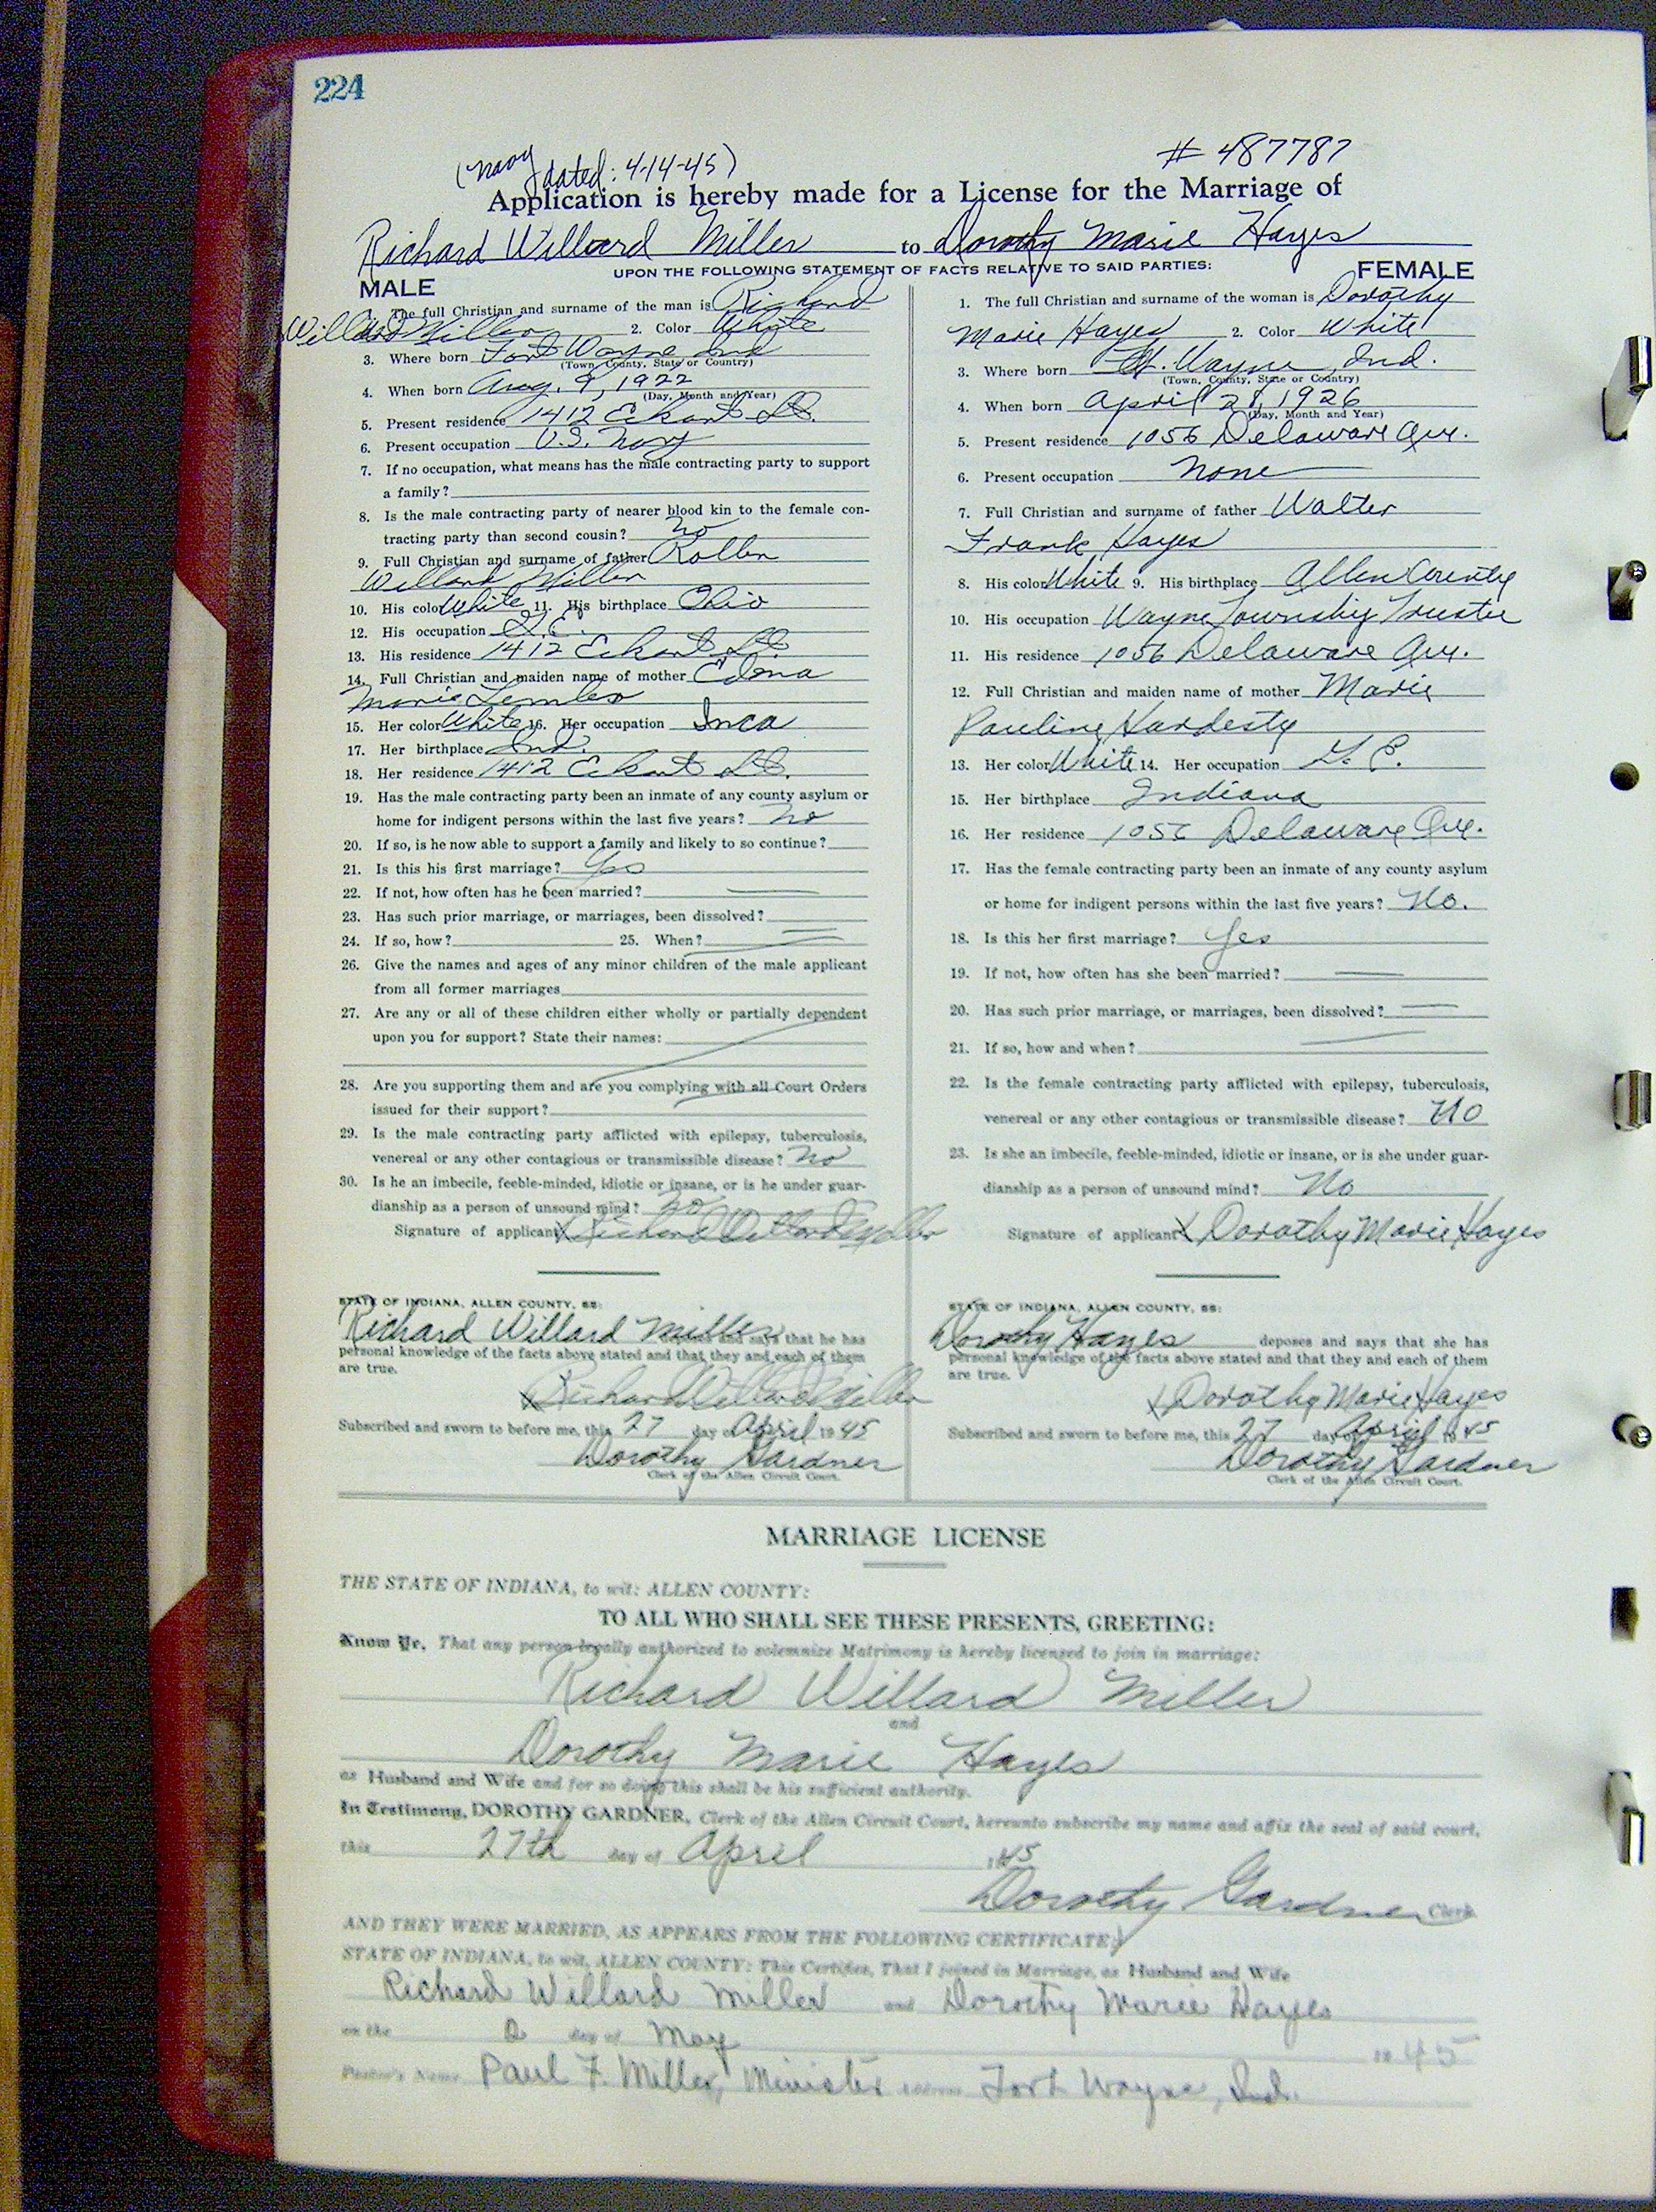 224
(Navy dated: 4-14-45)
# 487787
Application is hereby made for a License for the Marriage of
Richard Willard Miller to Dorothy Marie Hayes
UPON THE FOLLOWING STATEMENT OF FACTS RELATIVE TO SAID PARTIES:
MALE
The full Christian and surname of the man is Richard
Willard Miller 2. Color White
3. Where born Fort Wayne Ind
(Town, County, State or Country)
4. When born Aug. 9, 1922
(Day, Month and Year)
5. Present residence 1412 Eckart St.
6. Present occupation U.S. Navy
7. If no occupation, what means has the male contracting party to support
a family?
8. Is the male contracting party of nearer blood kin to the female con-
tracting party than second cousin? No
9. Full Christian and surname of father Rollin
Willard Miller
10. His color White 11. His birthplace Ohio
12. His occupation G.E.
13. His residence 1412 Eckart St.
14. Full Christian and maiden name of mother Edna
Marie
15. Her color White 16. Her occupation Inca
17. Her birthplace Ind.
18. Her residence 1412 Eckart St.
19. Has the male contracting party been an inmate of any county asylum or
home for indigent persons within the last five years? No
20. If so, is he now able to support a family and likely to so continue?
21. Is this his first marriage? Yes
22. If not, how often has he been married?
23. Has such prior marriage, or marriages, been dissolved?
24. If so, how? 25. When?
26. Give the names and ages of any minor children of the male applicant
from all former marriages
27. Are any or all of these children either wholly or partially dependent
upon you for support? State their names:
28. Are you supporting them and are you complying with all Court Orders
issued for their support?
29. Is the male contracting party afflicted with epilepsy, tuberculosis,
venereal or any other contagious or transmissible disease? No
30. Is he an imbecile, feeble-minded, idiotic or insane, or is he under guar-
dianship as a person of unsound mind? No
Signature of applicant X Richard Willard Miller
STATE OF INDIANA, ALLEN COUNTY, SS:
Richard Willard Miller says that he has
personal knowledge of the facts above stated and that they and each of them
are true.
X Richard Willard Miller
Subscribed and sworn to before me, this 27 day of April 1945
Dorothy Gardner
Clerk of the Allen Circuit Court.
FEMALE
1. The full Christian and surname of the woman is Dorothy
Marie Hayes 2. Color White
3. Where born Ft. Wayne, Ind.
(Town, County, State or Country)
4. When born April 28, 1926
(Day, Month and Year)
5. Present residence 1056 Delaware Ave.
6. Present occupation None
7. Full Christian and surname of father Walter
Frank Hayes
8. His color White 9. His birthplace Allen County
10. His occupation Wayne Township Trustee
11. His residence 1056 Delaware Ave.
12. Full Christian and maiden name of mother Marie
Pauline Hardesty
13. Her color White 14. Her occupation G. E.
15. Her birthplace Indiana
16. Her residence 1056 Delaware Ave.
17. Has the female contracting party been an inmate of any county asylum
or home for indigent persons within the last five years? No.
18. Is this her first marriage? Yes
19. If not, how often has she been married?
20. Has such prior marriage, or marriages, been dissolved?
21. If so, how and when?
22. Is the female contracting party afflicted with epilepsy, tuberculosis,
venereal or any other contagious or transmissible disease? No
23. Is she an imbecile, feeble-minded, idiotic or insane, or is she under guar-
dianship as a person of unsound mind? No
Signature of applicant X Dorothy Marie Hayes
STATE OF INDIANA, ALLEN COUNTY, SS:
Dorothy Hayes deposes and says that she has
personal knowledge of the facts above stated and that they and each of them
are true.
X Dorothy Marie Hayes
Subscribed and sworn to before me, this 27 day of April 1945
Dorothy Gardner
Clerk of the Allen Circuit Court.
MARRIAGE LICENSE
THE STATE OF INDIANA, to wit: ALLEN COUNTY:
TO ALL WHO SHALL SEE THESE PRESENTS, GREETING:
Know Ye, That any person legally authorized to solemnize Matrimony is hereby licensed to join in marriage:
Richard Willard Miller
and
Dorothy Marie Hayes
as Husband and Wife and for so doing this shall be his sufficient authority.
In Testimony, DOROTHY GARDNER, Clerk of the Allen Circuit Court, hereunto subscribe my name and affix the seal of said court,
this 27th day of April 1945
Dorothy Gardner Clerk
AND THEY WERE MARRIED, AS APPEARS FROM THE FOLLOWING CERTIFICATE:
STATE OF INDIANA, to wit, ALLEN COUNTY: This Certifies, That I joined in Marriage, as Husband and Wife
Richard Willard Miller and Dorothy Marie Hayes
on the day of May 1945
Pastor's Name Paul F. Miller, Minister Address Fort Wayne, Ind.